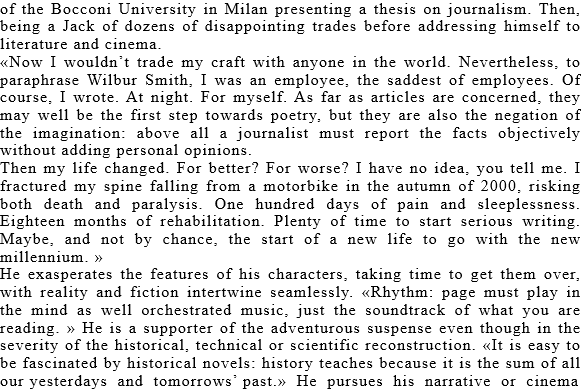 of the Bocconi University in Milan presenting a thesis on journalism. Then,
being a Jack of dozens of disappointing trades before addressing himself to
literature and cinema.
«Now I wouldn’t trade my craft with anyone in the world. Nevertheless, to
paraphrase Wilbur Smith, I was an employee, the saddest of employees. Of
course, I wrote. At night. For myself. As far as articles are concerned, they
may well be the first step towards poetry, but they are also the negation of
the imagination: above all a journalist must report the facts objectively
without adding personal opinions.
Then my life changed. For better? For worse? I have no idea, you tell me. I
fractured my spine falling from a motorbike in the autumn of 2000, risking
both death and paralysis. One hundred days of pain and sleeplessness.
Eighteen months of rehabilitation. Plenty of time to start serious writing.
Maybe, and not by chance, the start of a new life to go with the new
millennium. »
He exasperates the features of his characters, taking time to get them over,
with reality and fiction intertwine seamlessly. «Rhythm: page must play in
the mind as well orchestrated music, just the soundtrack of what you are
reading. » He is a supporter of the adventurous suspense even though in the
severity of the historical, technical or scientific reconstruction. «It is easy to
be fascinated by historical novels: history teaches because it is the sum of all
our yesterdays and tomorrows’ past.» He pursues his narrative or cinema